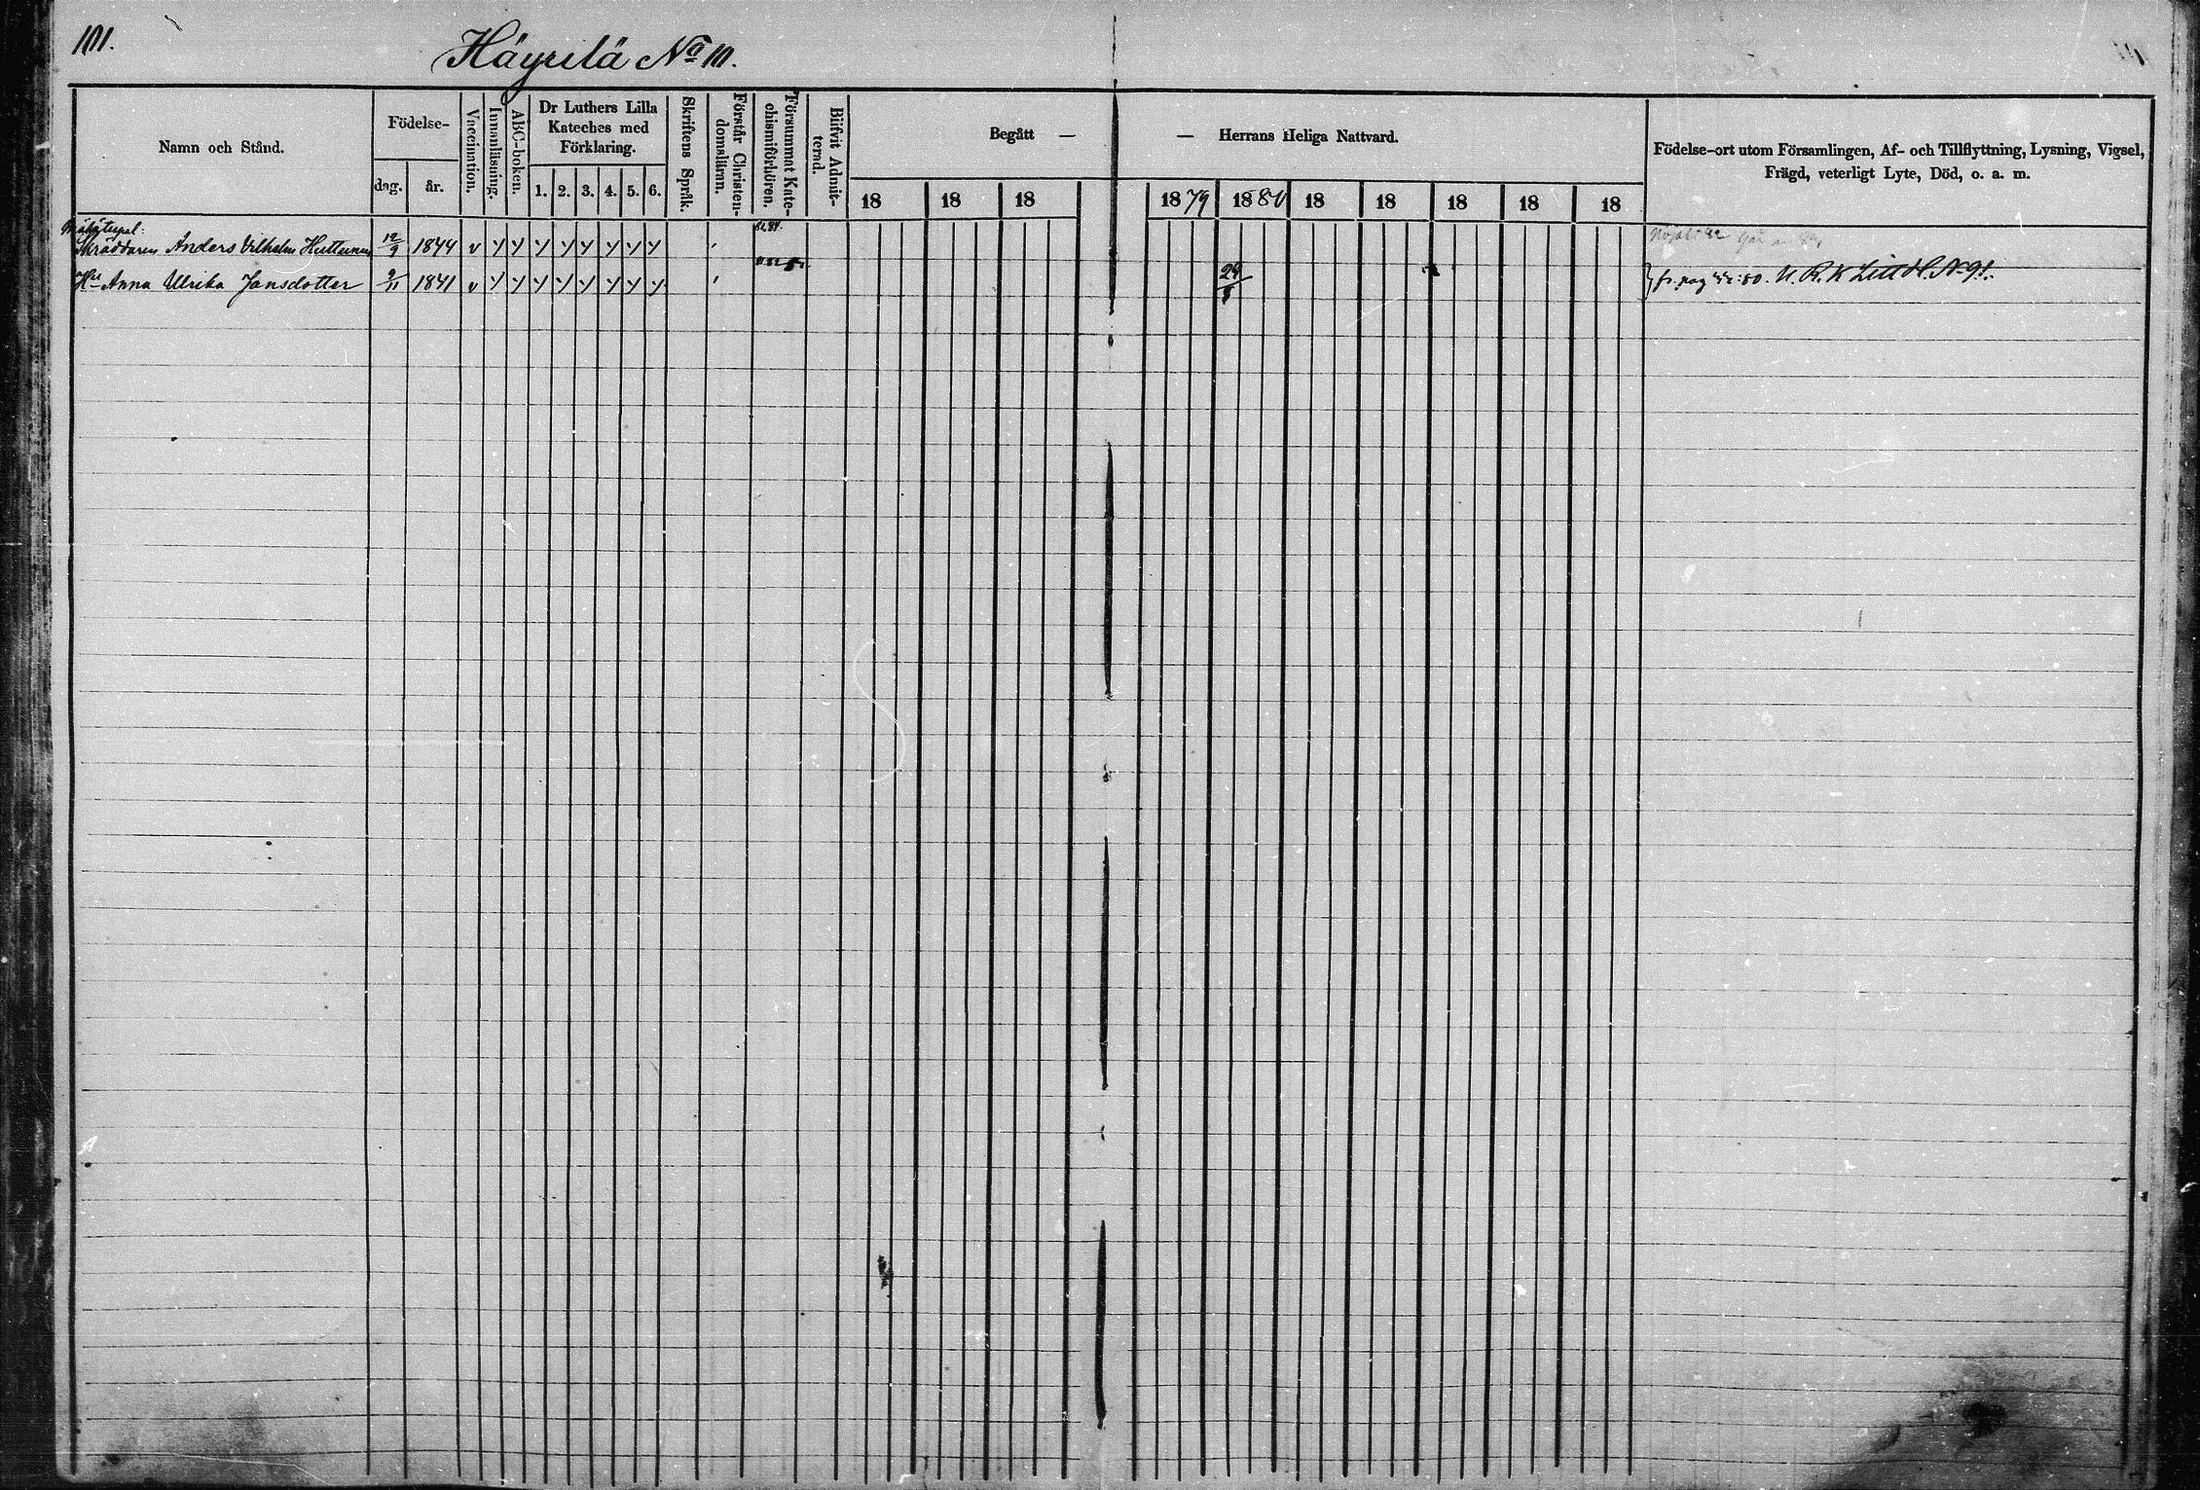 101.
Häyrilä No 10.
Namn och Stånd.
Födelse-
dag.
år.
Vaccination.
Innanläsning.
ABC-boken.
Dr Luthers Lilla
Kateches med
Förklaring.
1. 2. 3. 4. 5. 6.
Skriftens Språk.
Förstår Christen-
domsläran.
Försummat Kate-
chismiförhören.
Blifvit Admit-
terad.
Begått — — Herrans Heliga Nattvard.
18 18 18 1879 1880 18 18 18 18 18
Födelse-ort utom Församlingen, Af- och Tillflyttning, Lysning, Vigsel,
Frägd, veterligt Lyte, Död, o. a. m.
Skräddaren Anders Vilhelm Huttunen 12/9 1844 v y y y y y y y y
Hu Anna Ulrika Jansdotter 9/11 1841 v y y y y y y y y 29/8 fr. pag :80. U. R. K Litt H. No 91.